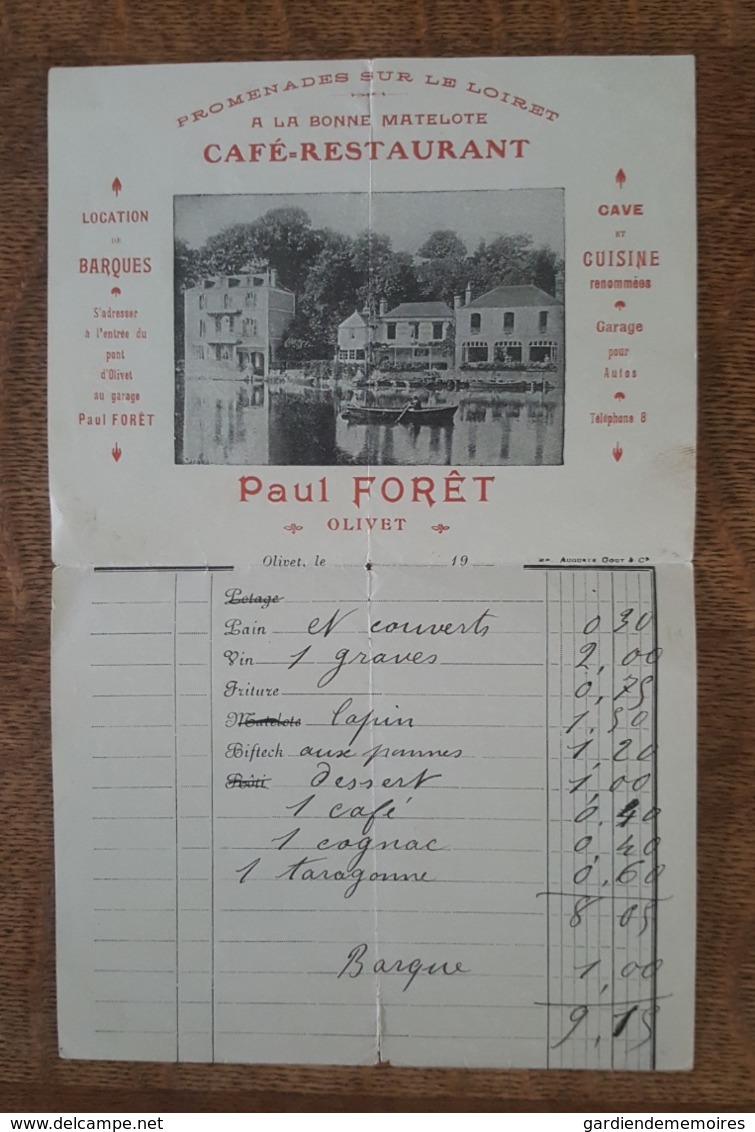 PROMENADES SUR LE LOIRET
A LA BONNE MATELOTE
CAFÉ=RESTAURANT
LOCATION
DE
BARQUES
S'adresser
à l'entrée du
pont
d'Olivet
au garage
Paul FORÊT
CAVE
ET
CUISINE
renommées
Garage
pour
Autos
Téléphone 8
Paul FORÊT
OLIVET
Olivet, le 19
AUGUSTE GOUT & Cie
Potage
Pain et couverts 0 30
Vin 1 graves 2,00
Friture 0,75
Matelote lapin 1,50
Bifteck aux pommes 1,20
Rôti dessert 1,00
1 café 0,40
1 cognac 0,40
1 taragonne 0,60
8 05
Barque 1,00
9,15
Delcampe.net
gardiendememoires